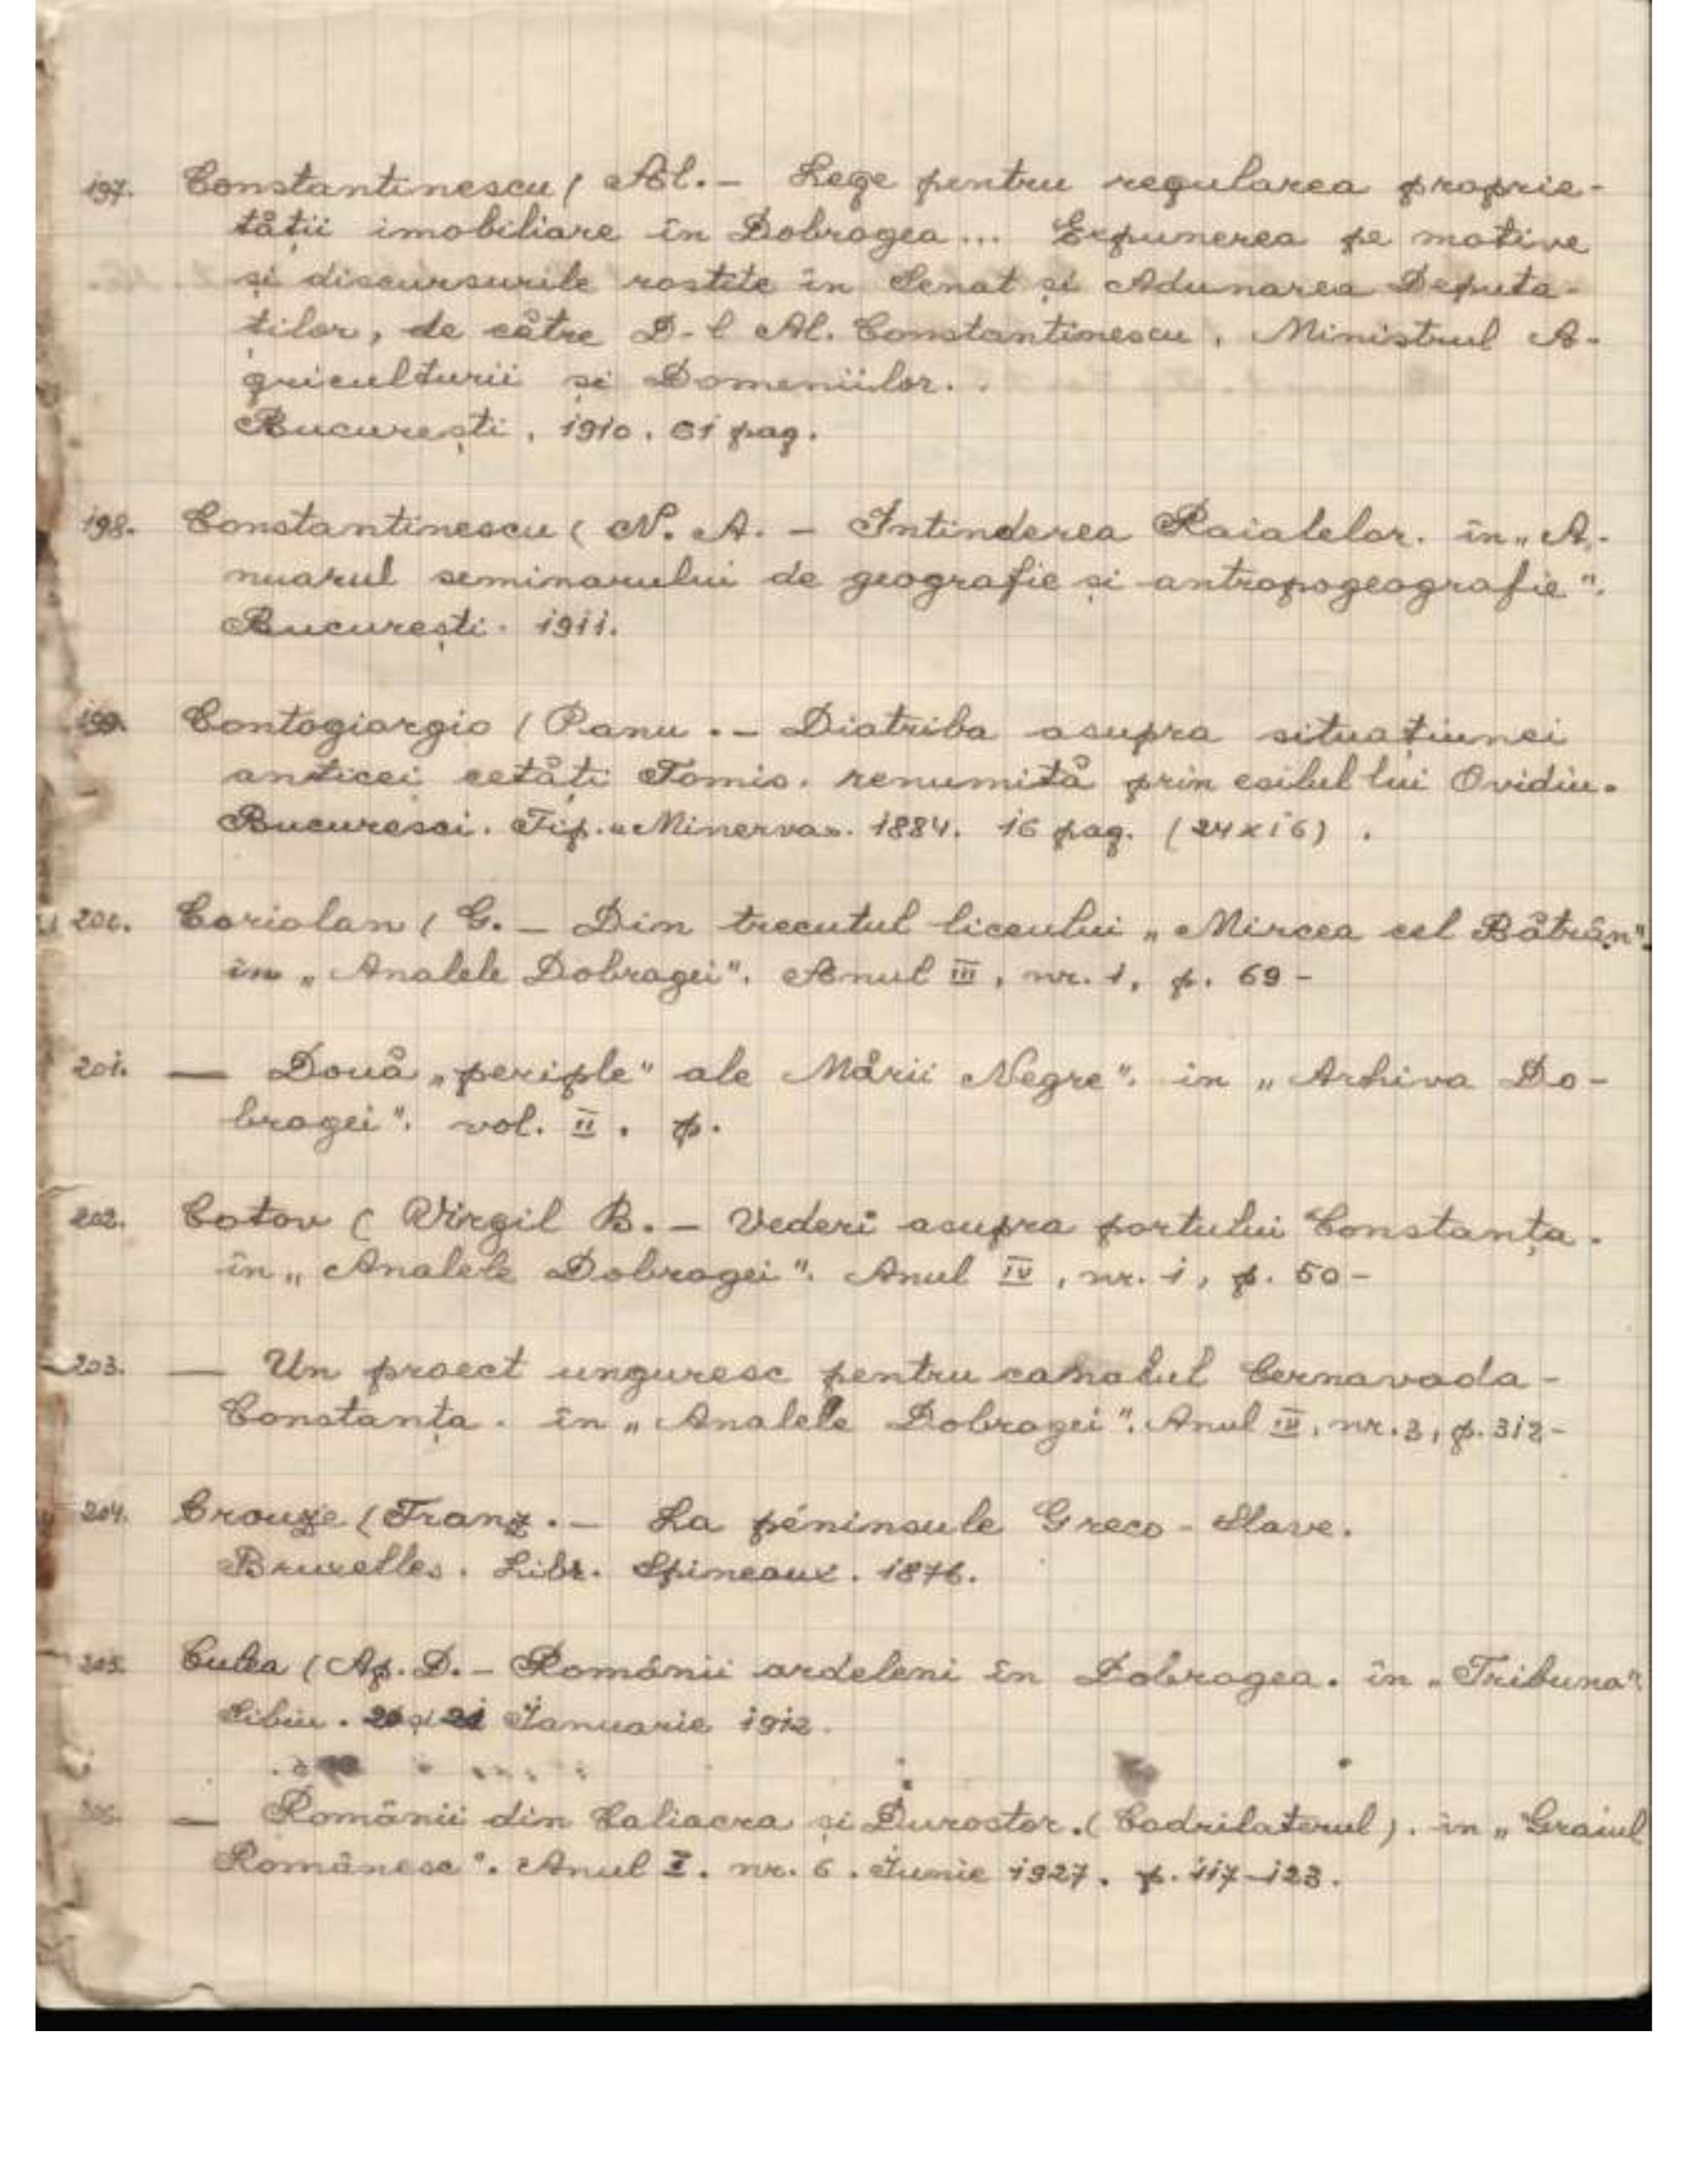 197. Constantinescu ( Al. – Lege pentru regularea proprie-
tății imobiliare în Dobrogea... Expunerea pe motive
și discursurile rostite în Senat și Adunarea Deputa-
ților, de către D-l Al. Constantinescu, Ministrul A-
griculturii și Domeniilor.
București. 1910. 61 pag.
198. Constantinescu ( N. A. – Intinderea Raialelor. în „A-
nuarul seminarului de geografie și antropogeografie".
București. 1911.
199. Contogiorgio ( Panu. – Diatriba asupra situațiunei
anticei cetăți Tomis. renumită prin esilul lui Ovidiu.
Bucuresci. Tip. „Minerva". 1884. 16 pag. (24x16).
200. Coriolan ( G. – Din trecutul liceului „Mircea cel Bătrân".
în „Analele Dobrogei". Anul III, nr. 1, p. 69 –
201. — Două „periple" ale Mării Negre". in „Arhiva Do-
brogei". vol. II. p.
202. Cotov ( Virgil B. – Vederi asupra portului Constanța.
în „Analele Dobrogei". Anul IV, nr. 1, p. 50 –
203. — Un proect unguresc pentru canalul Cernavoda -
Constanța. în „Analele Dobrogei". Anul IV, nr. 3, p. 312 –
204. Crouze ( Franz. – La péninsule Greco - Slave.
Bruxelles. Libr. Spineaux. 1876.
205. Culea ( Ap. D. – Românii ardeleni în Dobrogea. în „Tribuna"
Sibiu. 20 și 21 Ianuarie 1912.
206. — Românii din Caliacra și Durostor. (Cadrilaterul). în „Graiul
Românesc". Anul I. nr. 6. Iunie 1927. p. 117-123.